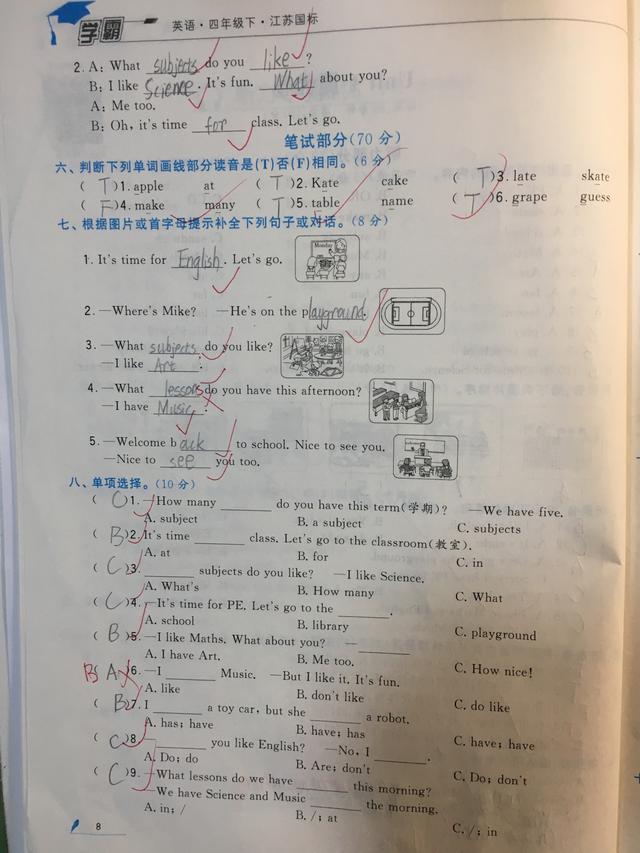 学霸 英语·四年级下·江苏国标
2. A: What subjects do you like?
B: I like Science. It's fun. What about you?
A: Me too.
B: Oh, it's time for class. Let's go.
笔试部分(70 分)
六、判断下列单词画线部分读音是(T)否(F)相同。(6 分)
( T )1. apple at ( T )2. Kate cake ( T )3. late skate
( F )4. make many ( T )5. table name ( T )6. grape guess
七、根据图片或首字母提示补全下列句子或对话。(8 分)
1. It's time for English. Let's go.
Monday
2. —Where's Mike? —He's on the playground.
3. —What subjects do you like?
—I like Art.
4. —What lessons do you have this afternoon?
—I have Music.
5. —Welcome back to school. Nice to see you.
—Nice to see you too.
八、单项选择。(10 分)
( C )1. —How many ______ do you have this term(学期)? —We have five.
A. subject B. a subject C. subjects
( B )2. It's time ______ class. Let's go to the classroom(教室).
A. at B. for C. in
( C )3. ______ subjects do you like? —I like Science.
A. What's B. How many C. What
( C )4. —It's time for PE. Let's go to the ______.
A. school B. library C. playground
( B )5. —I like Maths. What about you? —______
A. I have Art. B. Me too. C. How nice!
B ( A )6. —I ______ Music. —But I like it. It's fun.
A. like B. don't like C. do like
( B )7. I ______ a toy car, but she ______ a robot.
A. has; have B. have; has C. have; have
( C )8. —______ you like English? —No, I ______.
A. Do; do B. Are; don't C. Do; don't
( C )9. —What lessons do we have ______ this morning?
—We have Science and Music ______ the morning.
A. in; / B. /; at C. /; in
8